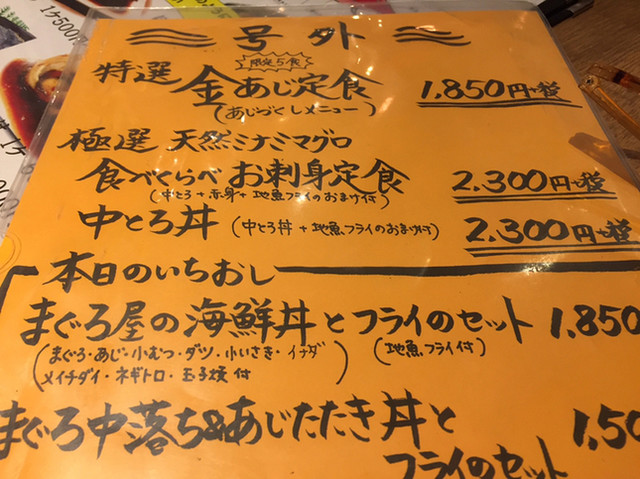 号外
限定5食
特選 金あじ定食 1,850円+税
(あじづくしメニュー)
極選 天然ミナミマグロ
食べくらべ お刺身定食 2,300円+税
(中とろ+赤身+地魚フライのおまけ付)
中とろ丼 (中とろ丼+地魚フライのおまけ付) 2,300円+税
本日のいちおし
まぐろ屋の海鮮丼とフライのセット 1,850
(まぐろ・あじ・小むつ・ダツ・小いさき・イナダ (地魚フライ付)
メイチダイ・ネギトロ・玉子焼付)
まぐろ中落ち&あじたたき丼と 1,50
フライのセット